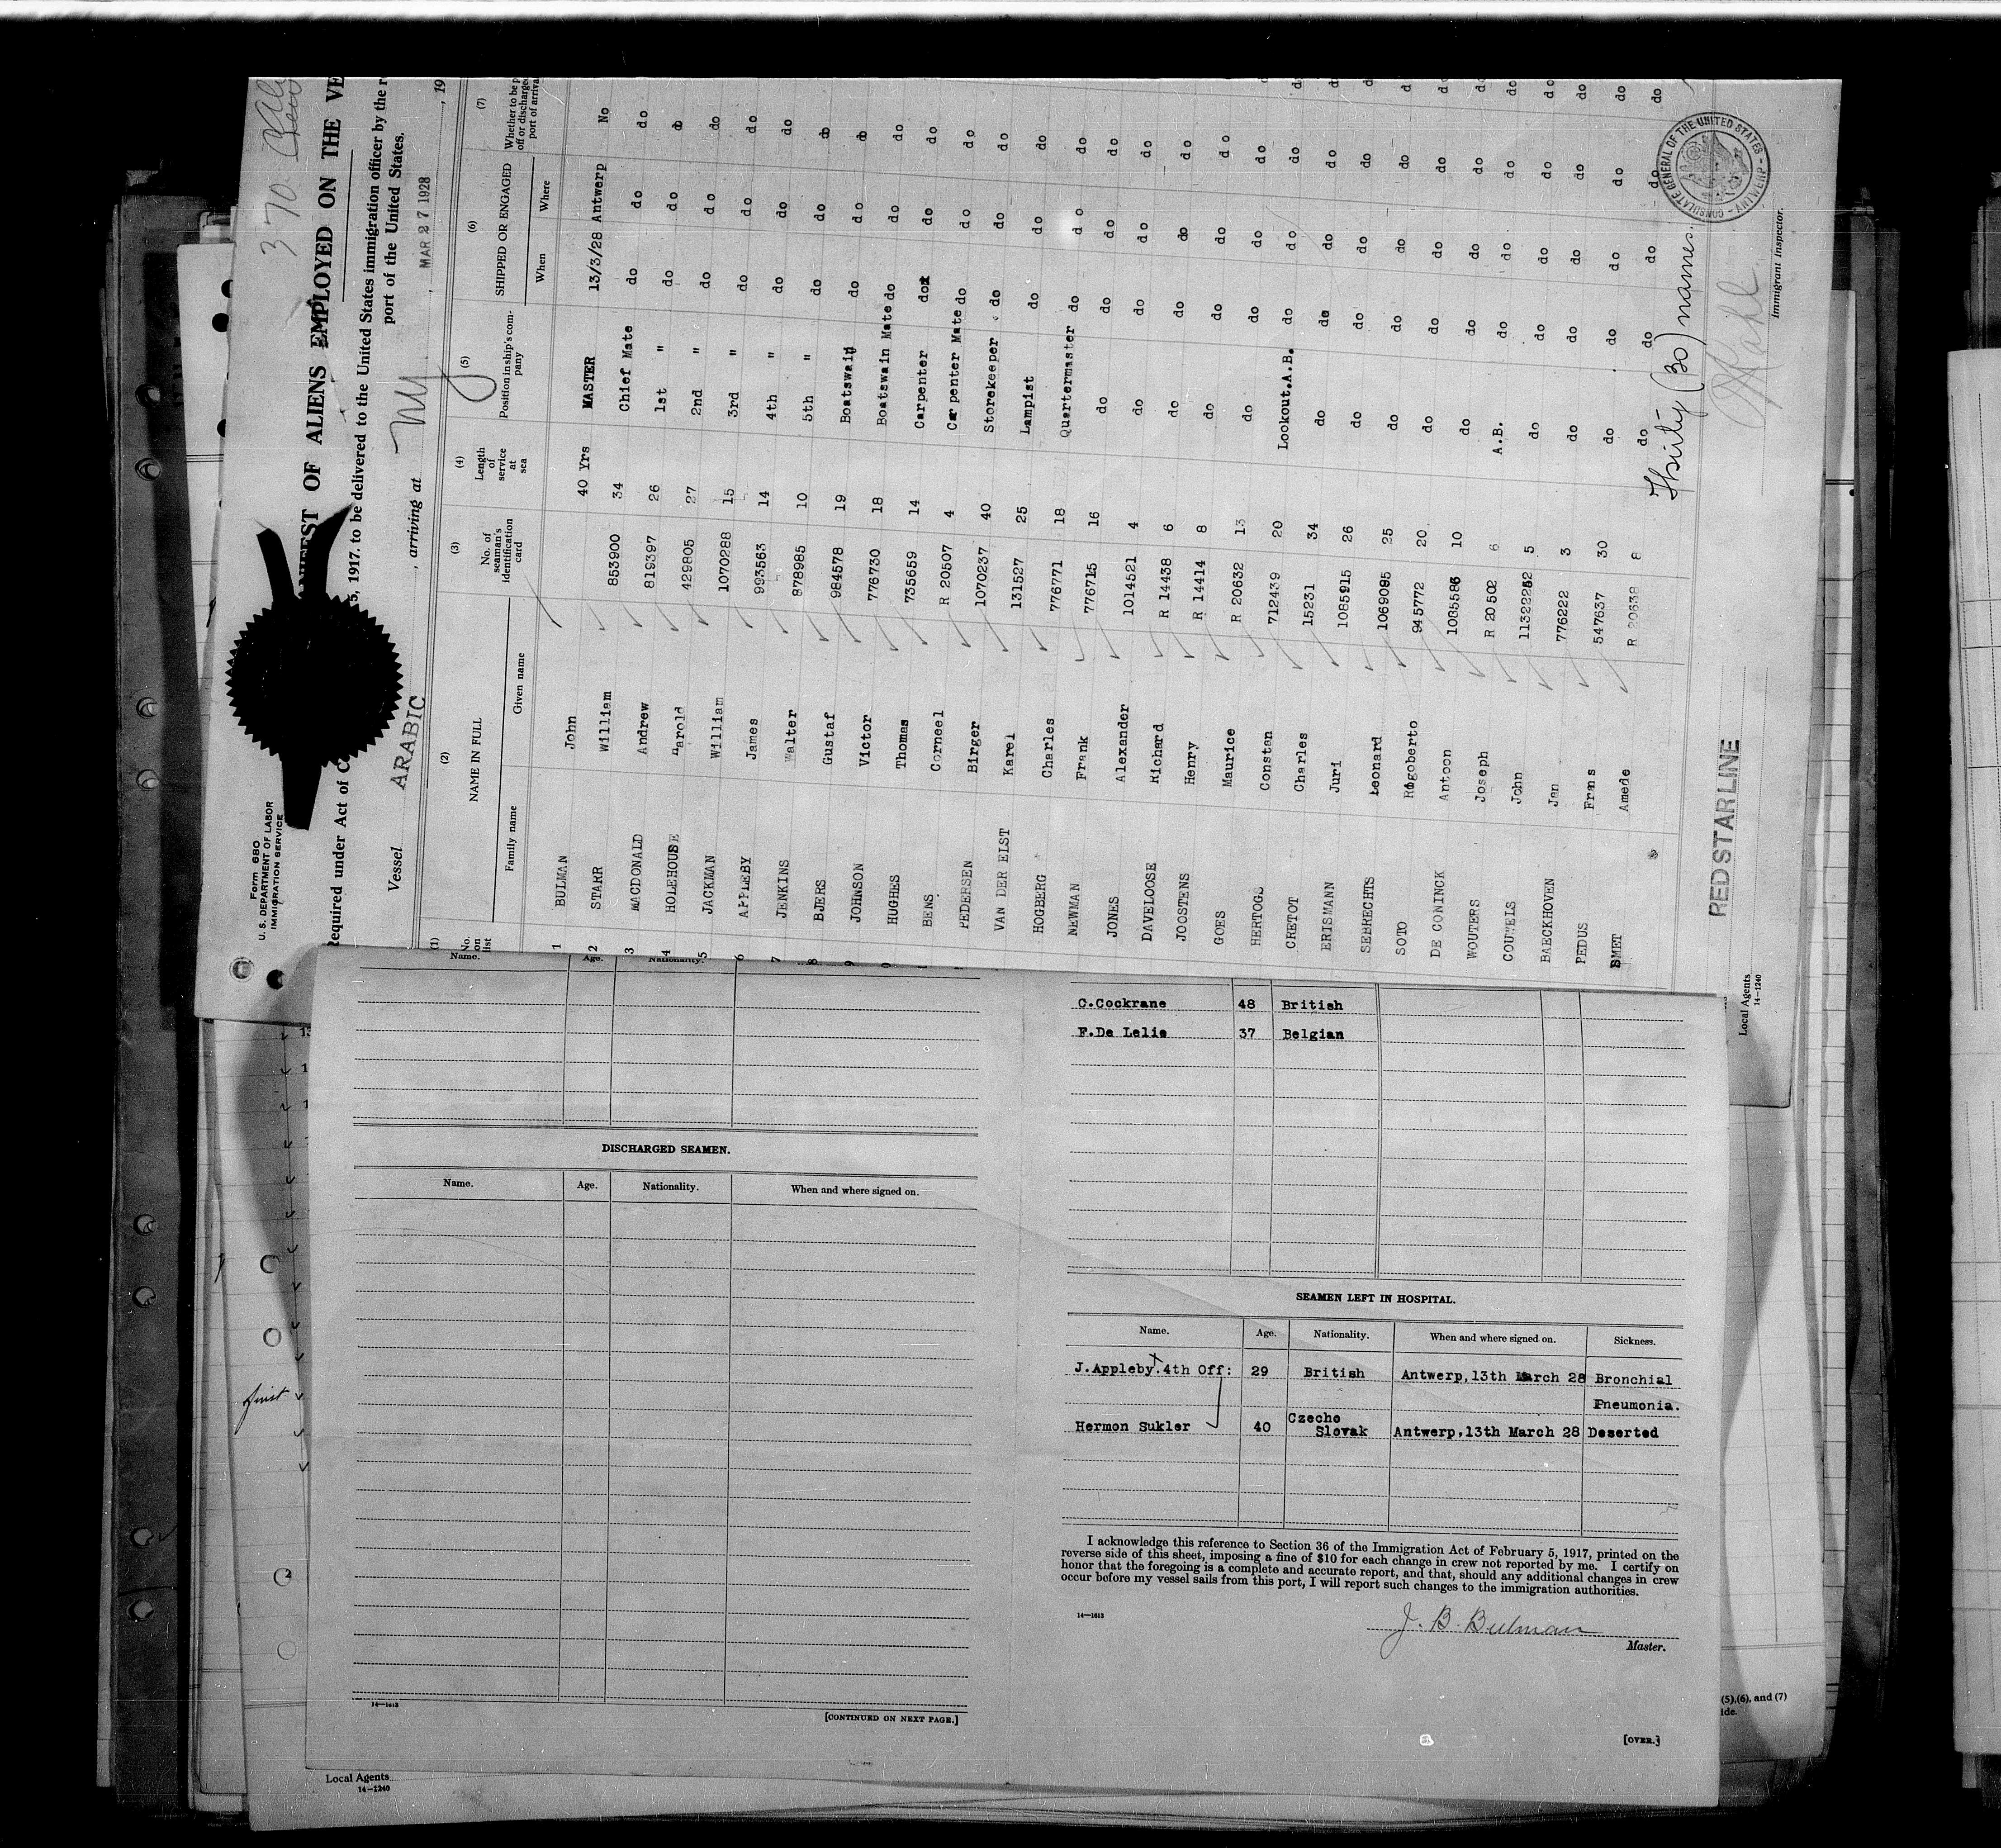 370
Form 680
U. S. DEPARTMENT OF LABOR
IMMIGRATION SERVICE
OF ALIENS EMPLOYED ON THE VE
Required under Act of
5, 1917, to be delivered to the United States immigration officer by the r
port of the United States.
Vessel ARABIC, arriving at NY, MAR 27 1928, 19
(1) (2) (3) (4) (5) (6) (7)
No. on list NAME IN FULL No. of seaman's identification card Length of service at sea Position in ship's company SHIPPED OR ENGAGED Whether to be p off or discharge port of arriva
Family name Given name When Where
1 BULMAN John 40 Yrs MASTER 13/3/28 Antwerp No
2 STARR William 853900 34 Chief Mate do do do
3 MACDONALD Andrew 819397 26 1st " do do do
4 HOLEHOUSE Harold 429805 27 2nd " do do do
5 JACKMAN William 1070288 15 3rd " do do do
6 APPLEBY James 993563 14 4th " do do do
7 JENKINS Walter 878985 10 5th " do do do
8 BJERS Gustaf 984578 19 Boatswain do do do
9 JOHNSON Victor 776730 18 Boatswain Mate do do do
HUGHES Thomas 735659 14 Carpenter do do do
BENS Corneel R 20507 4 Carpenter Mate do do do
PEDERSEN Birger 1070237 40 Storekeeper do do do
VAN DER ELST Karel 131527 25 Lampist do do do
HOGBERG Charles 776771 18 Quartermaster do do do
NEWMAN Frank 776715 16 do do do do
JONES Alexander 1014521 4 do do do do
DAVELOOSE Richard R 14438 6 do do do do
JOOSTENS Henry R 14414 8 do do do do
GOES Maurice R 20632 13 do do do do
HERTOGS Constan 712439 20 Lookout.A.B. do do do
CRETOT Charles 15231 34 do do do do do
ERISMANN Juri 1085915 26 do do do do do
SEBRECHTS Leonard 1069085 25 do do do do do
SOTO Rogoberto 945772 20 do do do do do
DE CONINCK Antoon 1085586 10 do do do do do
WOUTERS Joseph R 20502 6 A.B. do do do do
COUWELS John 11322252 5 do do do do do
BAECKHOVEN Jan 776222 3 do do do do do
PEDUS Frans 547637 30 do do do do do
SMET Amede R 20638 8 do do do do do
Thirty (30) names.
CONSULATE GENERAL OF THE UNITED STATES - ANTWERP -
Immigrant Inspector.
RED STAR LINE
Local Agents
14-1240
Name. Age. Nationality.
DISCHARGED SEAMEN.
Name. Age. Nationality. When and where signed on.
14—1613
[CONTINUED ON NEXT PAGE.]
C.Cockrane 48 British
F.De Lelie 37 Belgian
SEAMEN LEFT IN HOSPITAL.
Name. Age. Nationality. When and where signed on. Sickness.
J.Appleby.4th Off: 29 British Antwerp,13th March 28 Bronchial
Pneumonia.
Hermon Sukler 40 Czecho Slovak Antwerp,13th March 28 Deserted
I acknowledge this reference to Section 36 of the Immigration Act of February 5, 1917, printed on the
reverse side of this sheet, imposing a fine of $10 for each change in crew not reported by me. I certify on
honor that the foregoing is a complete and accurate report, and that, should any additional changes in crew
occur before my vessel sails from this port, I will report such changes to the immigration authorities.
14—1613
J. B. Bulman
Master.
[OVER.]
first
(5),(6), and (7)
ide.
Local Agents
14—1240